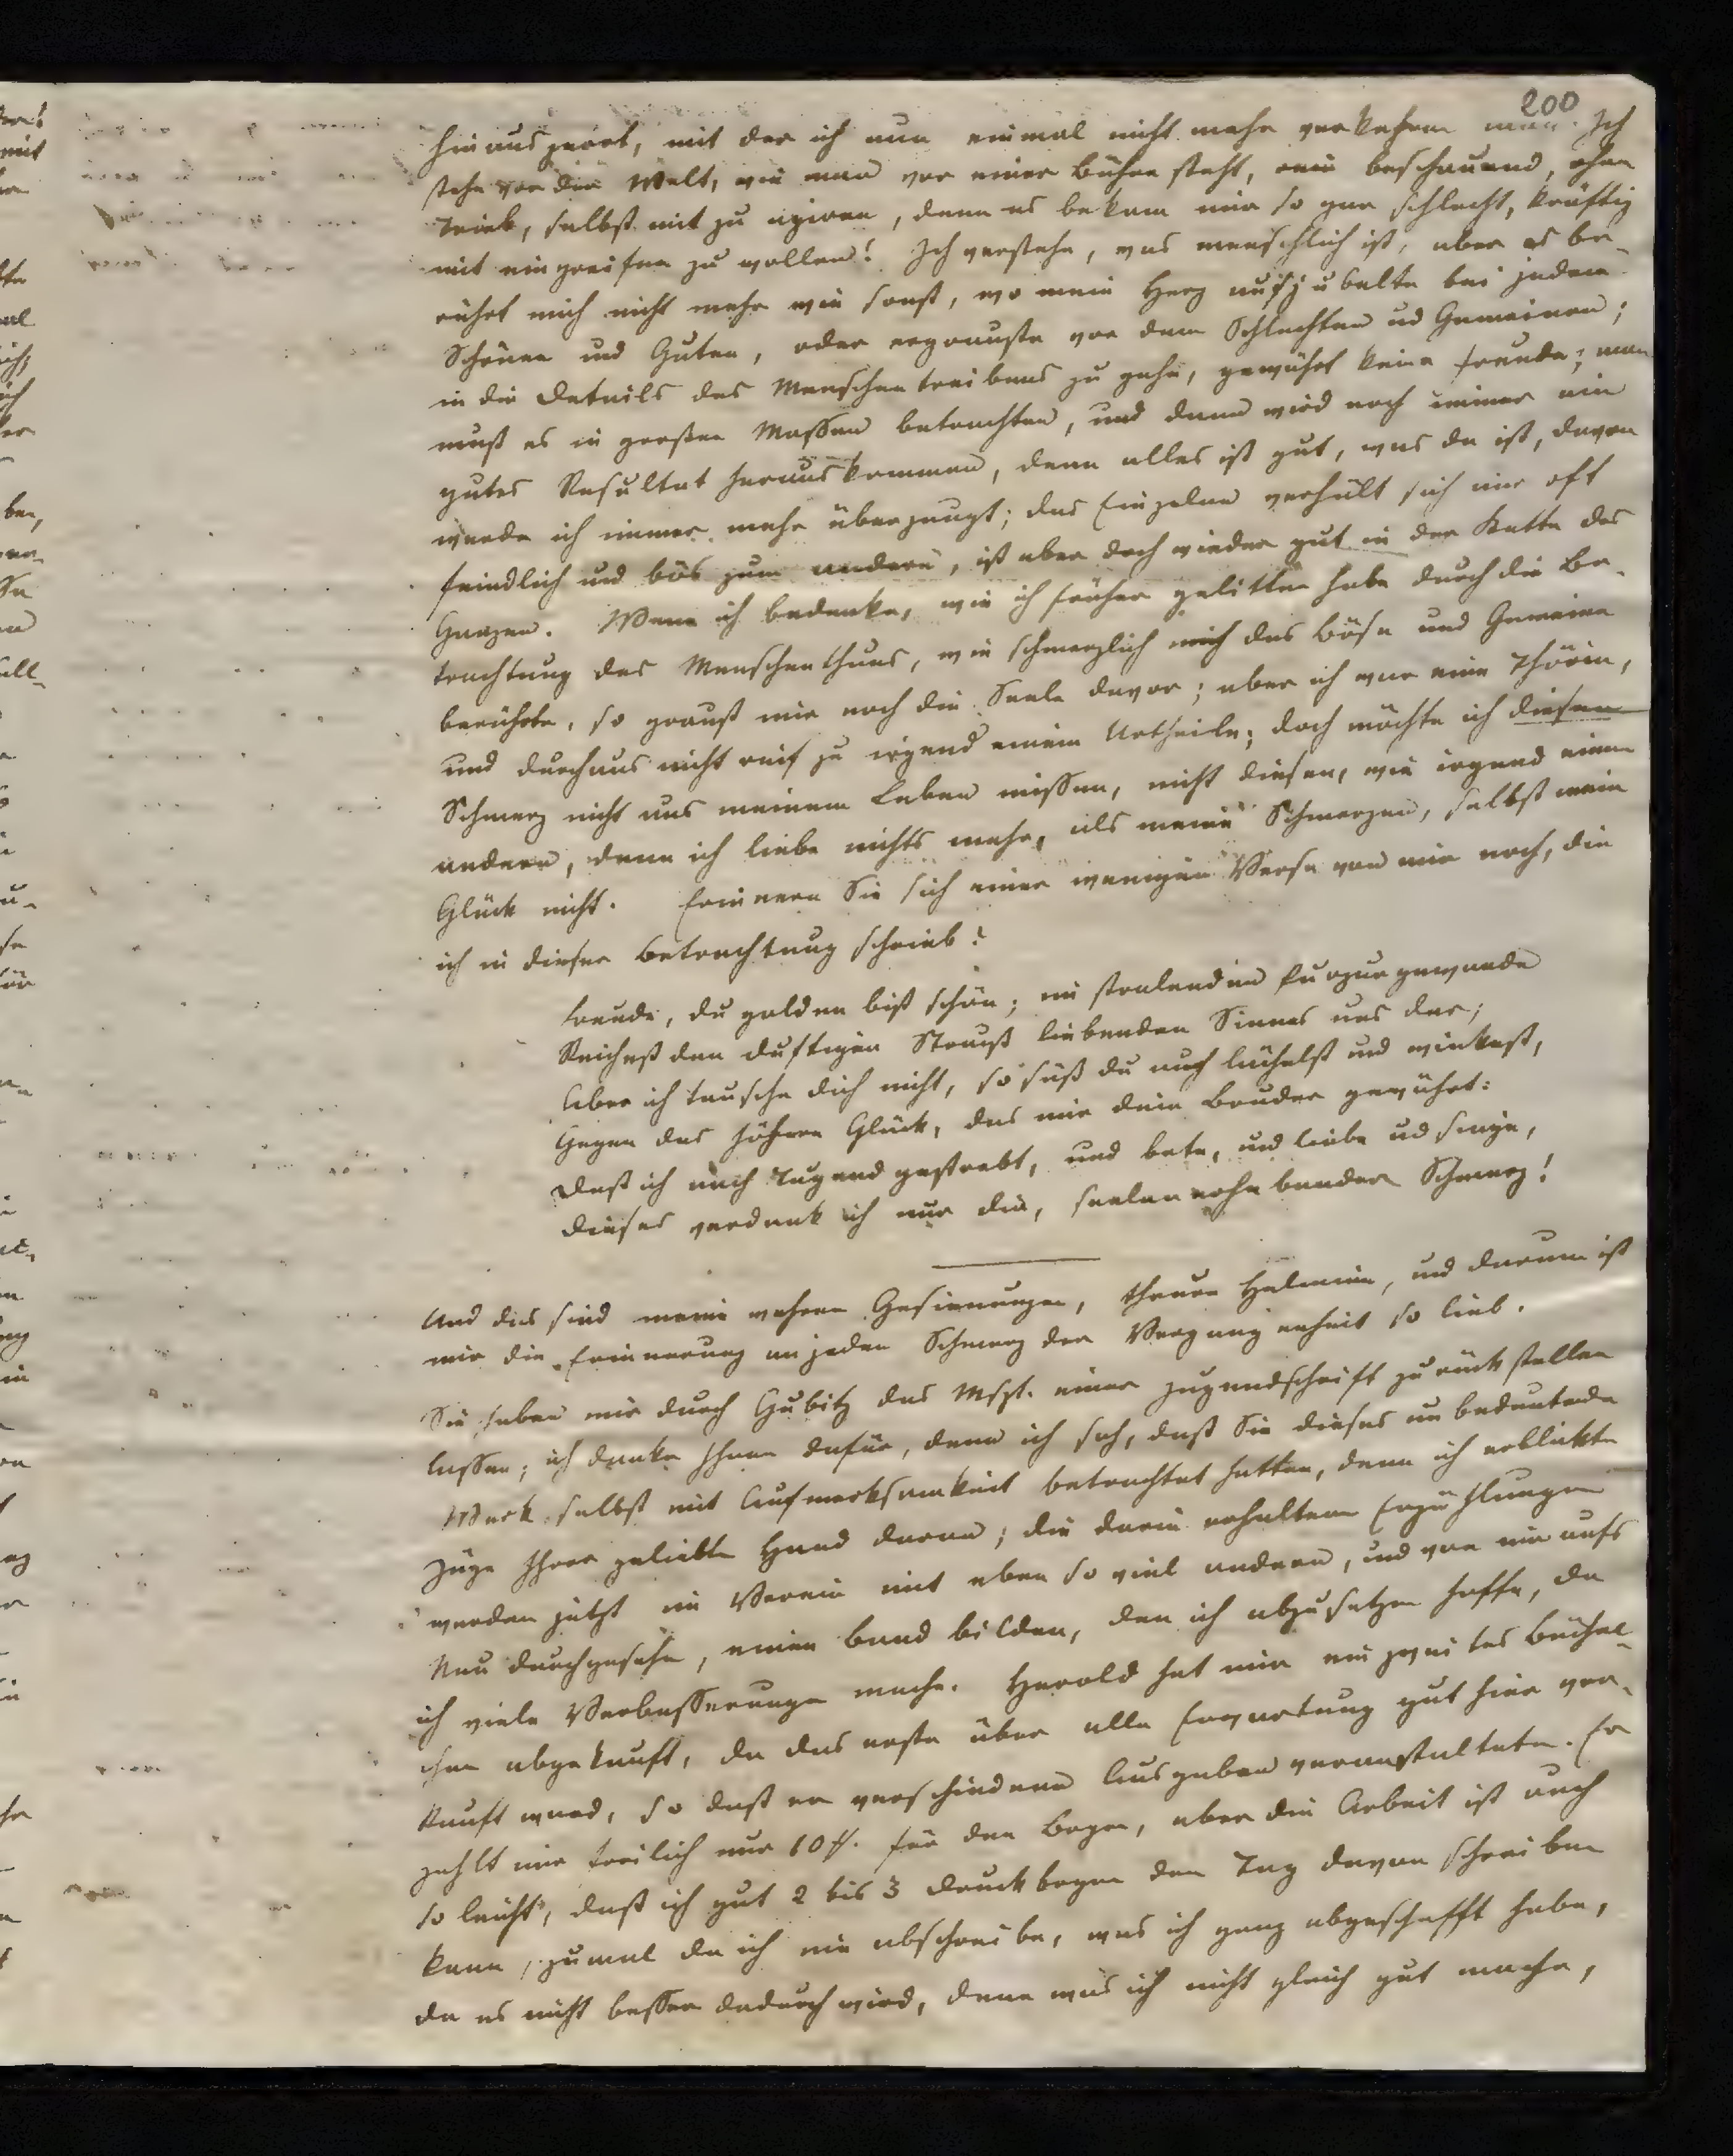 200
hinauszerrt, mit der ich nun einmal nicht mehr verkehren mag. Ich
stehe vor der Welt, wie man vor einer Bühne steht, rein beschauend, ohne
Trieb, selbst mit zu agiren, denn es bekam mir so gar schlecht, kräftig
mit eingreifen zu wollen! Ich verstehe, was menschlich ist, aber es be-
rührt mich nicht mehr wie sonst, wo mein Herz aufjubelte bei jedem
Schönen und Guten, oder ergrauste vor dem Schlechten ud Gemeinen;
in die Details des Menschentreibens zu gehn, gewährt keine Freude; man
muß es in großen Massen betrachten, und dann wird noch immer ein
gutes Resultat herauskommen, denn alles ist gut, was da ist, davon
werde ich immer mehr überzeugt; das Einzelne verhält sich nur oft
feindlich und bös zum andern, ist aber doch wieder gut in der Kette des
Ganzen. Wenn ich bedenke, wie ich früher gelitten habe durch die Be-
trachtung des Menschenthuns, wie schmerzlich mich das Böse und Gemeine
berührte, so graust mir noch die Seele davor; aber ich war eine Thörin,
und durchaus nicht reif zu irgend einem Urtheile; doch möchte ich diesen
Schmerz nicht aus meinem Leben missen, nicht diesen, wie irgend einen
andern, denn ich liebe nichts mehr, als meine Schmerzen, selbst mein
Glück nicht. Erinnern Sie sich einer wenigen Verse von mir noch, die
ich in dieser Betrachtung schrieb?
Freude, du golden bist schön; im stralenden Purpurgewande
Reichest den duftigen Strauß liebenden Sinnes uns dar;
Aber ich tausche dich nicht, so süß du auch lächelst und winkest,
Gegen das höhere Glück, das mir dein Bruder gewährt:
Daß ich nach Tugend gestrebt, und bete, und liebe ud singe,
Dieses verdank ich nur dir, seelenerhebender Schmerz!
Und dies sind meine wahren Gesinnungen, theure Helmina, und darum ist
mir die Erinnerung an jeden Schmerz der Vergangenheit so lieb.
Sie haben mir durch Gubitz das Mspt. einer Jugendschrift zurückstellen
lassen; ich danke Ihnen dafür, denn ich sah, daß Sie dieses unbedeutende
Werk selbst mit Aufmerksamkeit betrachtet hatten, denn ich erblickte
Züge Ihrer geliebten Hand daran; die darin enthaltenen Erzählungen
werden jetzt im Verein mit eben so viel andern, und von mir aufs
Neu durchgesehn, einen Band bilden, den ich abzusetzen hoffe, da
ich viele Verbesserungen mache. Herold hat mir ein zweites Büchel-
chen abgekauft, da das erste über alle Erwartung gut hier ver-
kauft ward, so daß er verschiedene Ausgaben veranstaltete. Er
zahlt mir freilich nur 10 f. für den Bogen, aber die Arbeit ist auch
so leicht, daß ich gut 2 bis 3 Druckbogen den Tag davon schreiben
kann, zumal da ich nie abschreibe, was ich ganz abgeschafft habe,
da es nicht besser dadurch wird, denn was ich nicht gleich gut mache,